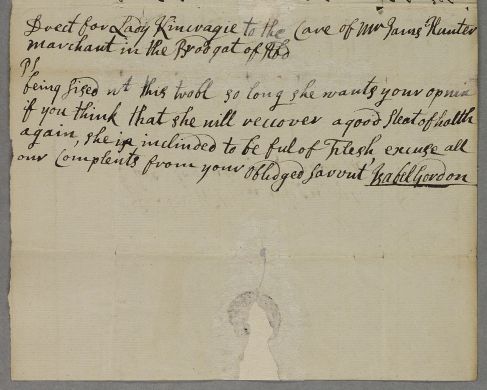 Drect for Lady Kincragie to the Care of Mr Jams Hunter
marchant in the Brodgat of Abd
PS
being sised wt this trobl so long she wants your opnia
if you think that she will recover a good steat of hallth
again, she is inclinded to be ful of Flesh excuse all
our Complents from your obledged Sarvnt Isabel Gordon